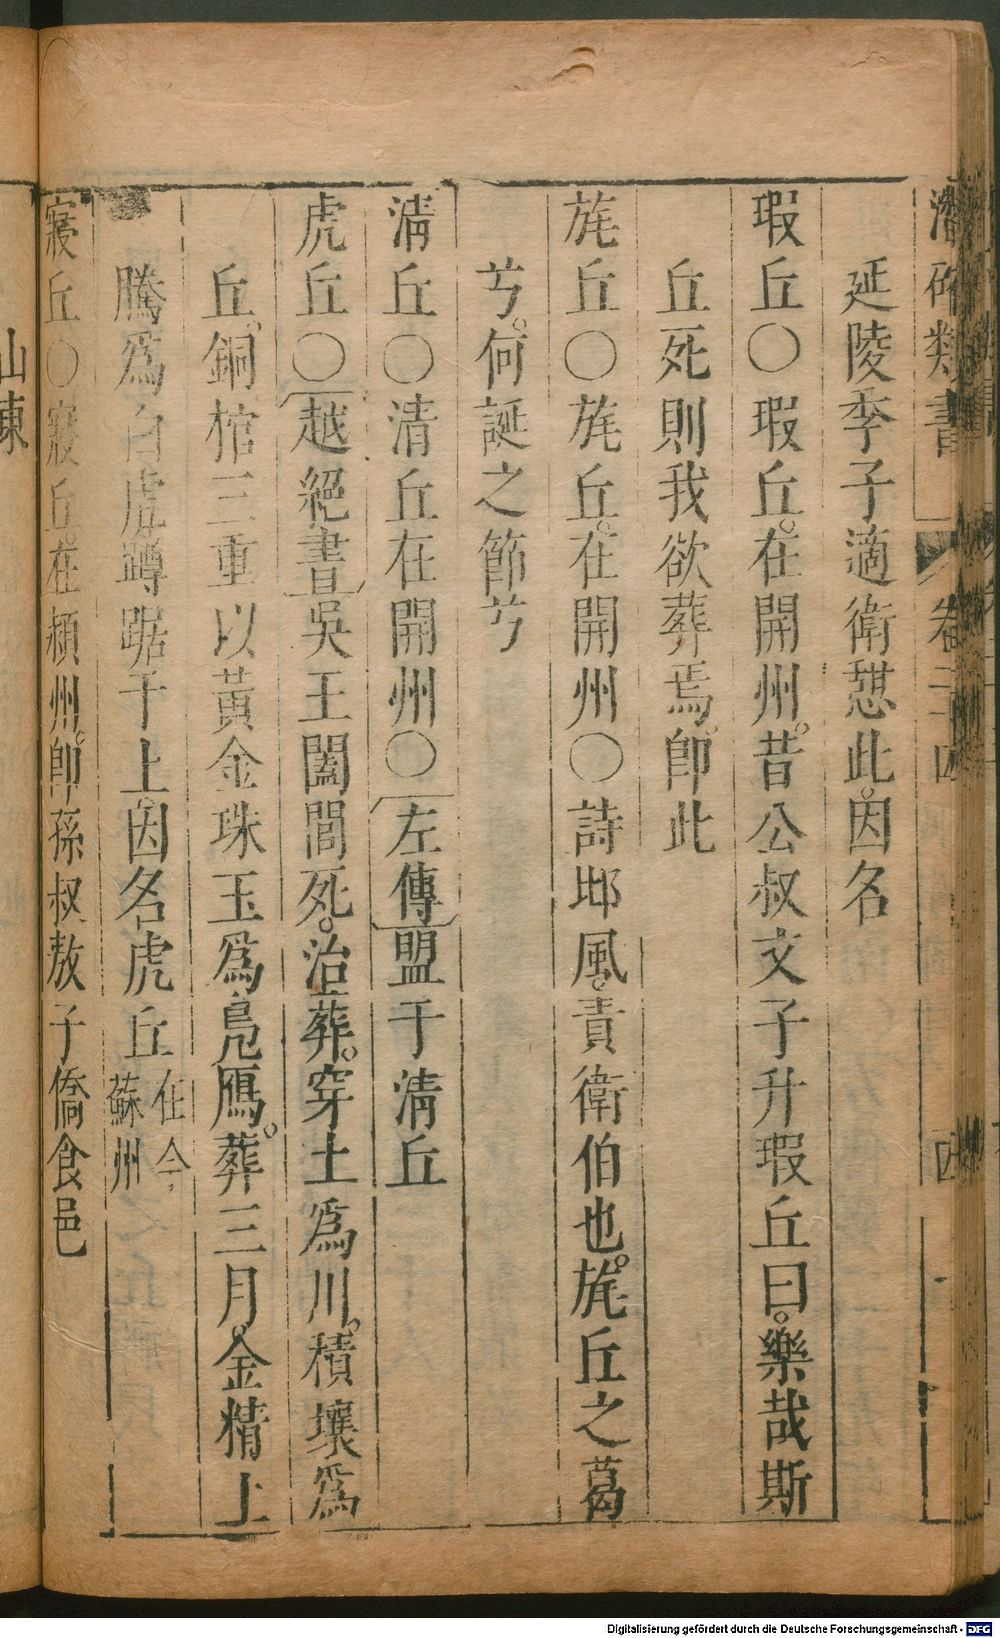 潛确類書 卷二十四 四
延陵季子適衛憇此。因名
瑕丘〇瑕丘。在開州。昔公叔文子升瑕丘曰。樂哉斯
丘死則我欲葬焉。卽此
旄丘〇旄丘。在開州〇詩邶風。責衛伯也。旄丘之葛
兮。何誕之節兮
清丘〇清丘在開州〇左傳盟于清丘
虎丘〇越絕書吳王闔閭死。治葬。穿土爲川。積壤爲
丘。銅棺三重以黃金珠玉爲鳧鴈。葬三月。金精上
騰爲白虎蹲踞于上。因名虎丘在今蘇州
寢丘〇寢丘。在潁州。卽孫叔敖子僑食邑
山東
Digitalisierung gefördert durch die Deutsche Forschungsgemeinschaft - DFG